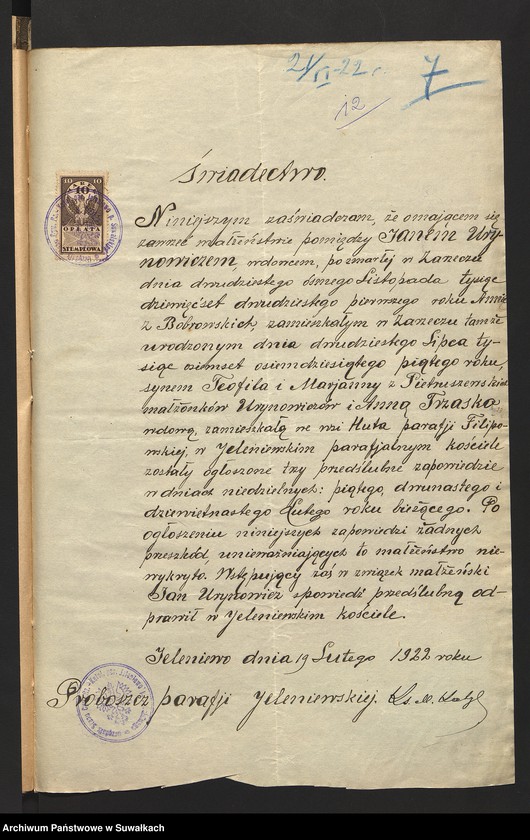 21/II-22 r. 7
12
Świadectwo.
10 10
10
OPŁATA
STEMPLOWA
Niniejszym zaświadczam, że o mającem się
zawrzeć małżeństwie pomiędzy Janem Ury-
nowiczem, wdowcem, po zmarłej w Zarzeczu
dnia dwudziestego ósmego Listopada tysiąc
dziewięćset dwudziestego pierwszego roku Annie
z Bobrowskich, zamieszkałym w Zarzeczu tamże
urodzonym dnia dwudziestego Lipca ty-
siąc osiemset osiemdziesiątego piątego roku,
synem Teofila i Marjanny z Pietruszewskich
małżonków Urynowiczów i Anną Trzaska
wdową, zamieszkałą we wsi Huta parafji Filipo-
wskiej, w Jeleniewskim parafjalnym kościele
zostały ogłoszone trzy przedślubne zapowiedzie
w dniach niedzielnych: piątego, dwunastego i
dziewiętnastego Lutego roku bieżącego. Po
ogłoszeniu niniejszych zapowiedzi żadnych
przeszkód, unieważniających to małżeństwo nie-
wykryto. Wstępujący zaś w związek małżeński
Jan Urynowicz spowiedź przedślubną od-
prawił w Jeleniewskim kościele.
Jeleniewo dnia 19 Lutego 1922 roku
Proboszcz parafji Jeleniewskiej. Ks. M.
Archiwum Państwowe w Suwałkach